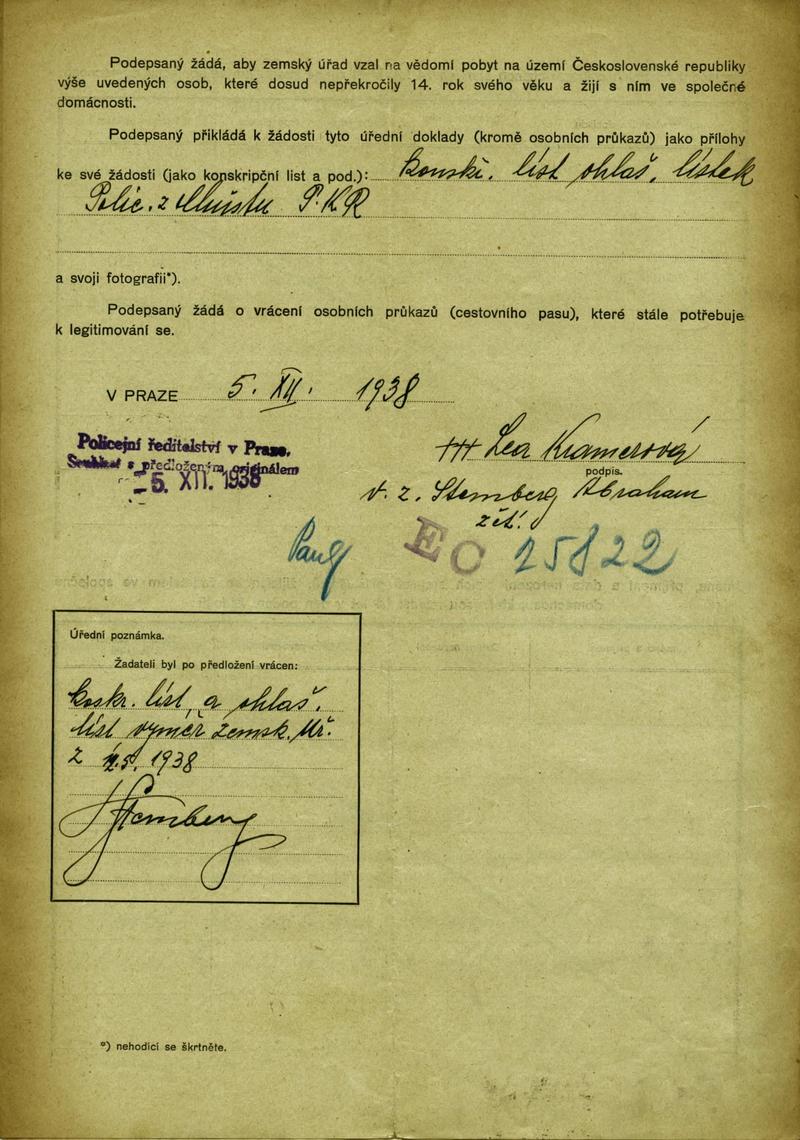 Podepsaný žádá, aby zemský úřad vzal na vědomí pobyt na území Československé republiky
výše uvedených osob, které dosud nepřekročily 14. rok svého věku a žijí s ním ve společné
domácnosti.
Podepsaný přikládá k žádosti tyto úřední doklady (kromě osobních průkazů) jako přílohy
ke své žádosti (jako konskripční list a pod.): konskr. list ohlaš. lístek
Polic. z P.K.R
a svoji fotografii*).
Podepsaný žádá o vrácení osobních průkazů (cestovního pasu), které stále potřebuje
k legitimování se.
V PRAZE 5. XII. 1938
Policejní ředitelství v Praze.
Souhlasí s předloženým originálem
-5. XII. 1938
+++ Lea Kramerová
podpis.
v. z. Sternberg Abraham
zeť.
EO 15822
Úřední poznámka.
Žadateli byl po předložení vrácen:
koskr. list, a ohlaš.
list výměr zemsk. úř.
z 1938
Sternberg
*) nehodící se škrtněte.